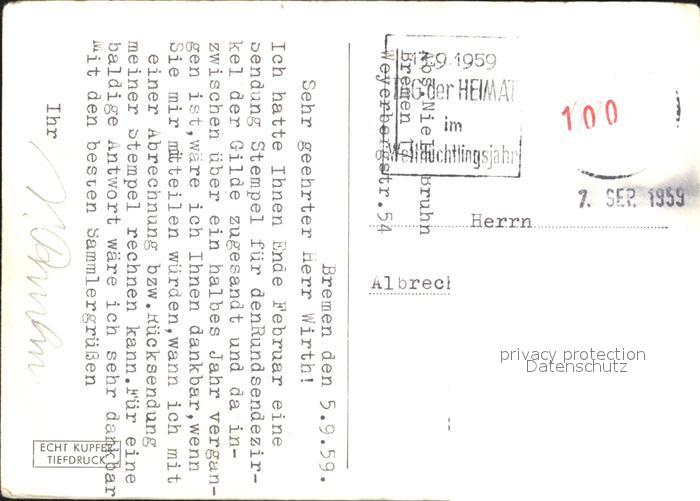 Bremen den 5.9.59.
Sehr geehrter Herr Wirth!
Ich hatte Ihnen Ende Februar eine
Sendung Stempel für denRundsendezir-
kel der Gilde zugesandt und da in-
zwischen über ein halbes Jahr vergan-
gen ist,wäre ich Ihnen dankbar,wenn
Sie mir mitteilen würden,wann ich mit
einer Abrechnung bzw.Rücksendung
meiner Stempel rechnen kann.Für eine
baldige Antwort wäre ich sehr dankbar
Mit den besten Sammlergrüßen
Ihr
ECHT KUPFER
TIEFDRUCK
Abs.Niels Bruhn
Bremen 1
Weyerbergstr.54
9.1959
TAG der HEIMAT
im
Weltflüchtlingsjahr
100
7. SEP. 1959
Herrn
Albrech
privacy protection
Datenschutz